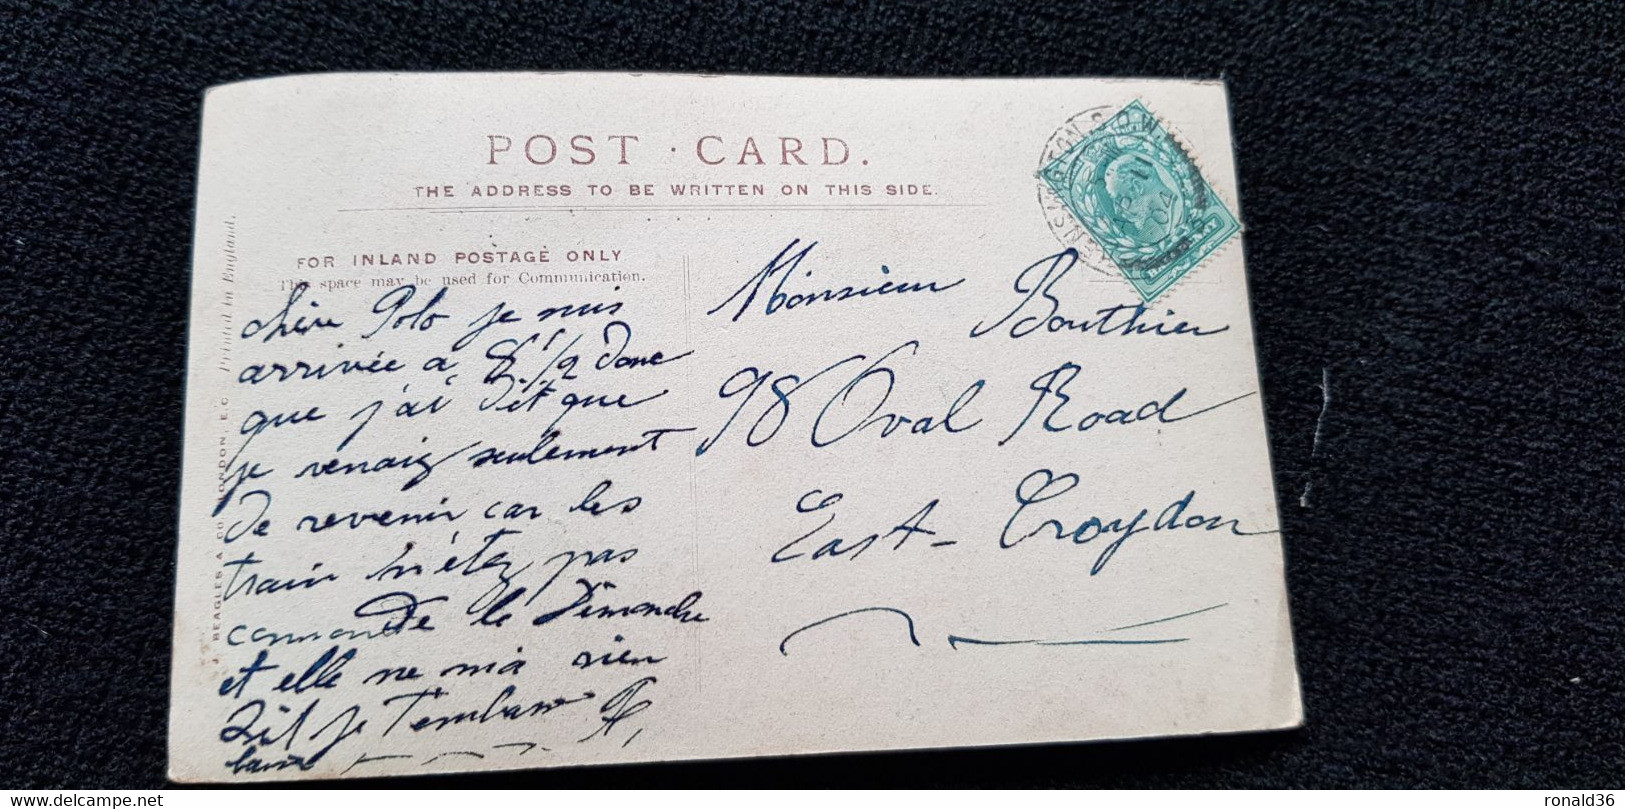 POST CARD.
THE ADDRESS TO BE WRITTEN ON THIS SIDE.
FOR INLAND POSTAGE ONLY
This space may be used for Communication.
Printed in England.
J. BEAGLES & CO. LONDON, E.C.
KENSINGTON S.O.W.
AP 11
04
HALFPENNY
chère Polo je suis
arrivée a 8 1/2 donc
que j'ai dit que
je venaiz seulement
de revenir car les
train n'étez pas
comande le Dimanche
et elle ne m'a rien
dit je
Monsieur Bouthier
98 Oval Road
East-Croydon
delcampe.net
ronald36